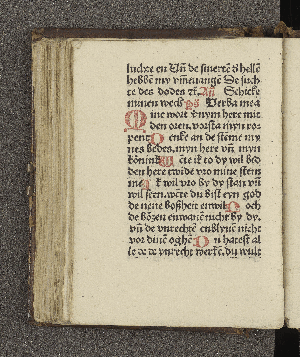 ludze en Vn̄ de smertē d̕ hellē
hebbē my vm̄euangē De such
te des doden ꝛē. An̄ Schicke
mynen wech ps Verba mea
Mine wort v̕nym here mit
den oren. vorsta myn rop
pent Denke an de stēme my
nes bedes. myn here vn̄ myn
konink Wēte ik to dy wil bed
den here twide vro mine stem
me Ik wil vro by dy stan vn̄
wil seen. wēte du bist eyn god
de nene boßheit en wil Noch
de bözen enwanē nicht by dy.
vn̄ de vnrechtē enblyuē nicht
vor dinē oghē Du hatest al
le de de vnrecht werkē. du wult